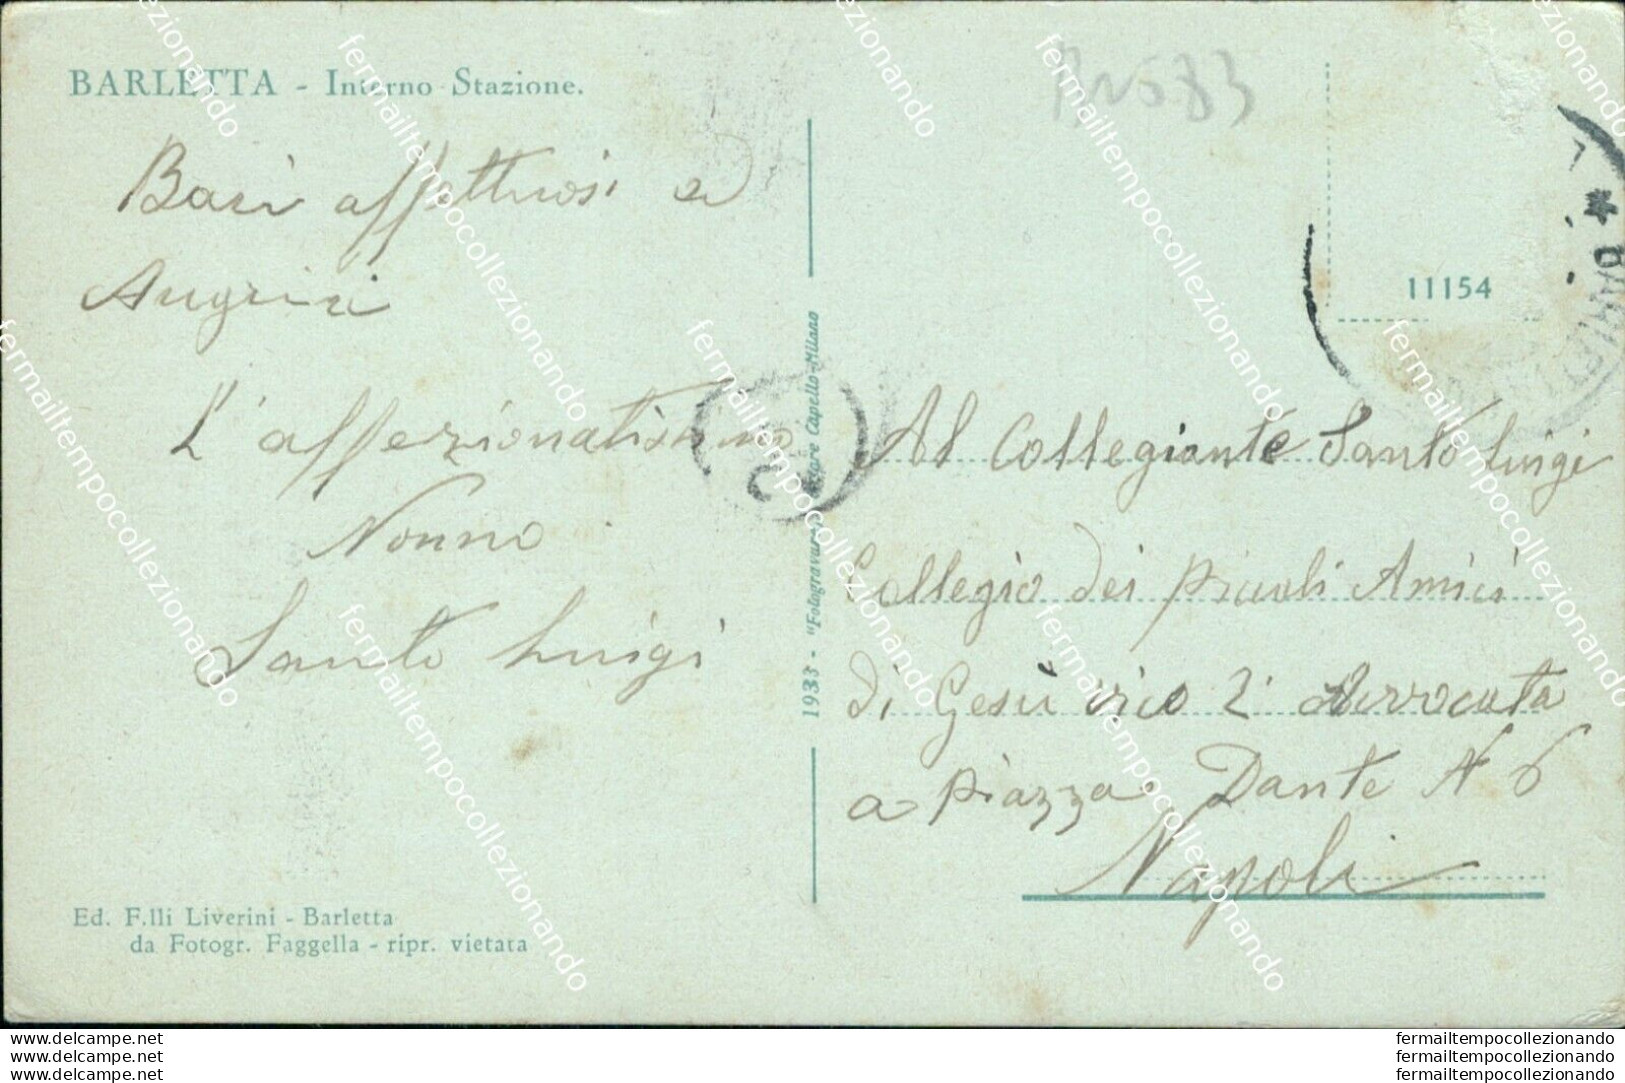 BARLETTA - Interno Stazione.
Baci affettuosi e
Auguri
L'affezionatissimo
Nonno
Santo Luigi
Ed. F.lli Liverini - Barletta
da Fotogr. Faggella - ripr. vietata
1933 - "Fotogravure" Cesare Capello - Milano
11154
Al Collegiante Santo Luigi
Collegio dei Piccoli Amici
di Gesù vico 2° Avvocata
a Piazza Dante N 6
Napoli
fermailtempocollezionando
www.delcampe.net fermailtempocollezionando
www.delcampe.net fermailtempocollezionando
www.delcampe.net fermailtempocollezionando